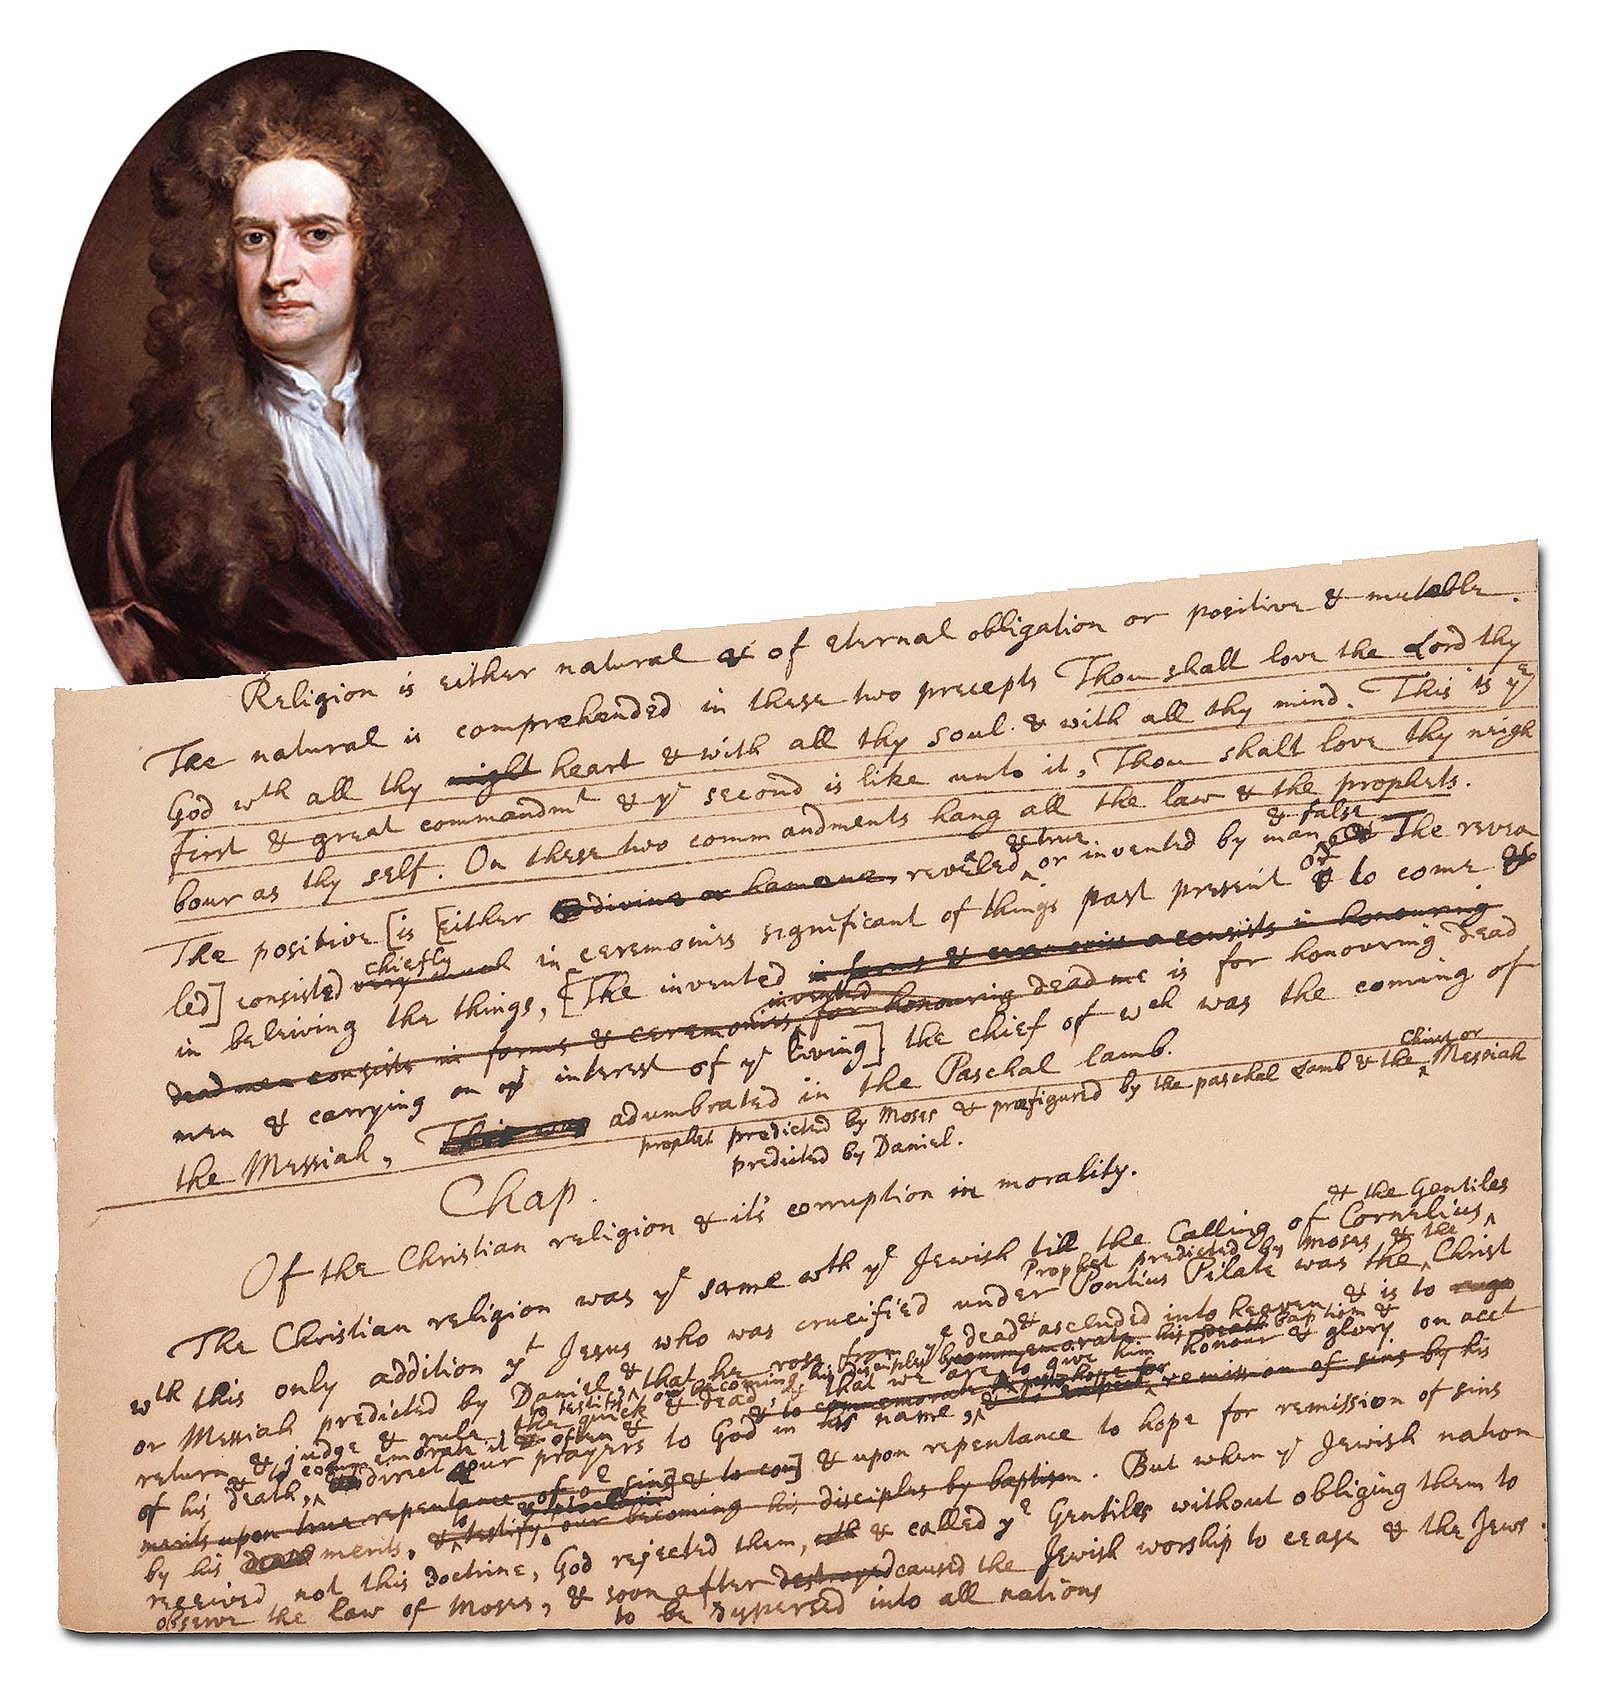 Religion is either natural & of eternal obligation or positive & mutable.
The natural is comprehended in these two precepts Thou shalt love the Lord thy
God wth all thy might heart & with all thy soul & with all thy mind. This is ye
first & great commandmt & ye second is like unto it, Thou shalt love thy neigh
bour as thy self. On these two commandments hang all the law & the prophets.
& true & false
The positive [is [either divine or humane, revealed or invented by man The revea
led] consisted very much chiefly in ceremonies significant of things past present or & to come &
in beleiving the things, [The invented in forms & ceremonies & consists in honouring
invented
dead men consists in forms & ceremonies for honouring dead me is for honouring dead
men & carrying on interest of ye living] the chief of wch was the coming of
the Messiah, This was adumbrated in the Paschal lamb.
prophet predicted by Moses & præfigured by the paschal Lamb & the Christ or Messiah
predicted by Daniel.
Chap.
Of the Christian religion & its corruption in morality.
The Christian religion was ye same wth ye Jewish till the Calling of Cornelius & the Gentiles
Prophet predicted by Moses & the
wth this only addition yt Jesus who was crucified under Pontius Pilate was the Christ
or Messiah predicted by Daniel & that he rose from ye dead & ascended into heaven & is to
return & judge & rule the quick & dead, & that we are to give him honour & glory on acct
of his death, & direct our prayers to God in his name, remission of sins by his
merits upon true repentance of & to con] & upon repentance to hope for remission of sins
by his death merits, & testify our becoming his disciples by baptism. But when ye Jewish nation
received not this doctrine, God rejected them, & called ye Gentiles without obliging them to
observe the law of Moses, & soon after destroyed caused the Jewish worship to cease & the Jews
to be dispersed into all nations